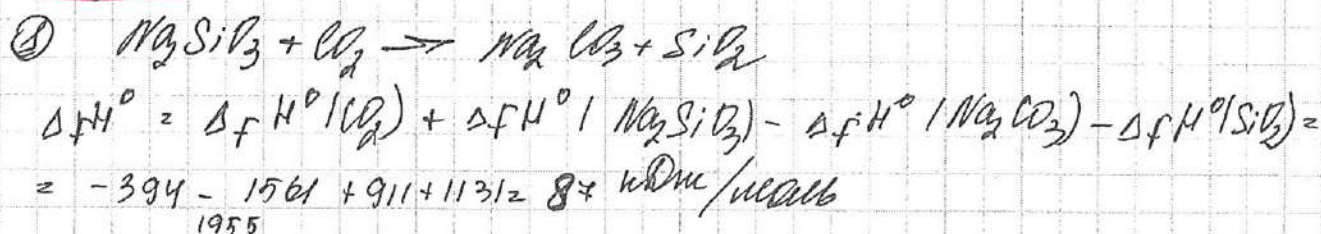 ⑧ Na₂SiO₃ + CO₂ → Na₂CO₃ + SiO₂
ΔfH° = ΔfH°(CO₂) + ΔfH°(Na₂SiO₃) - ΔfH°(Na₂CO₃) - ΔfH°(SiO₂) =
= -394 - 1561 + 911 + 1131 = 87 кДж/моль
1955